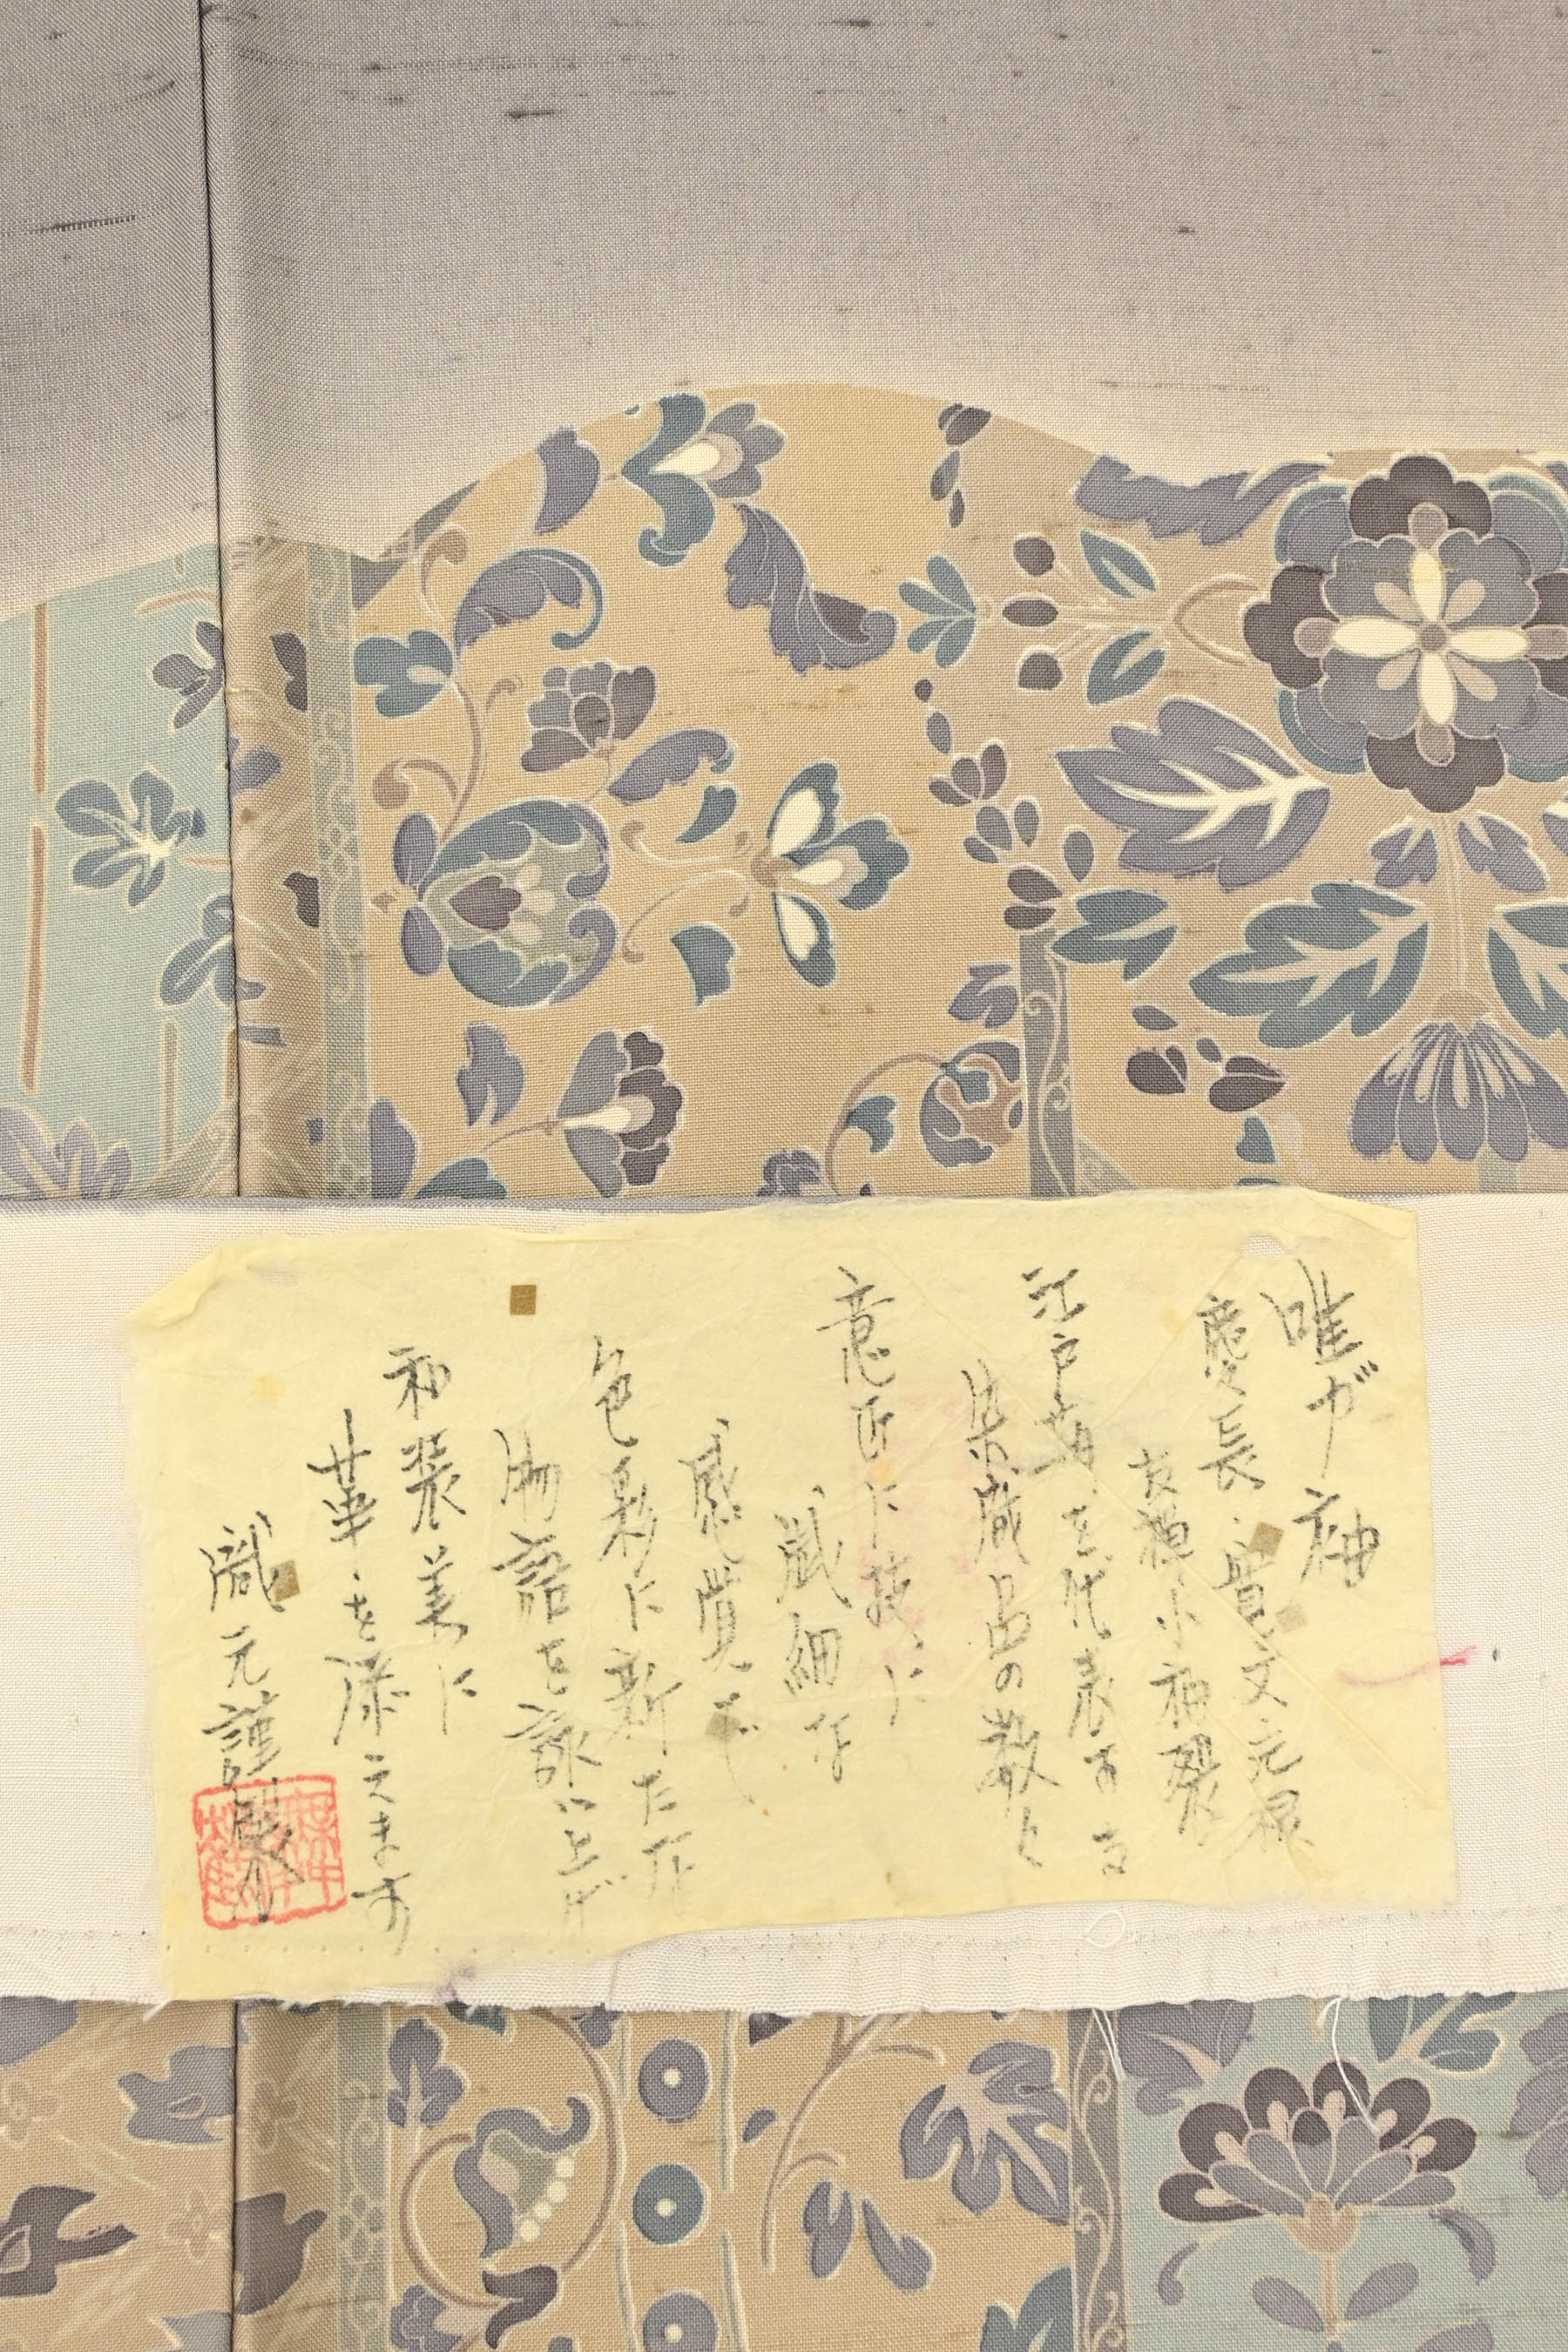 唯が袖
慶長・寛文元禄
友禅小袖裂
江戸期を代表する
染織品の数々
意匠に技に
繊細な
感覚で
色彩に新たな
物語を詠い上げ
和装美に
華を添えます
織元謹製